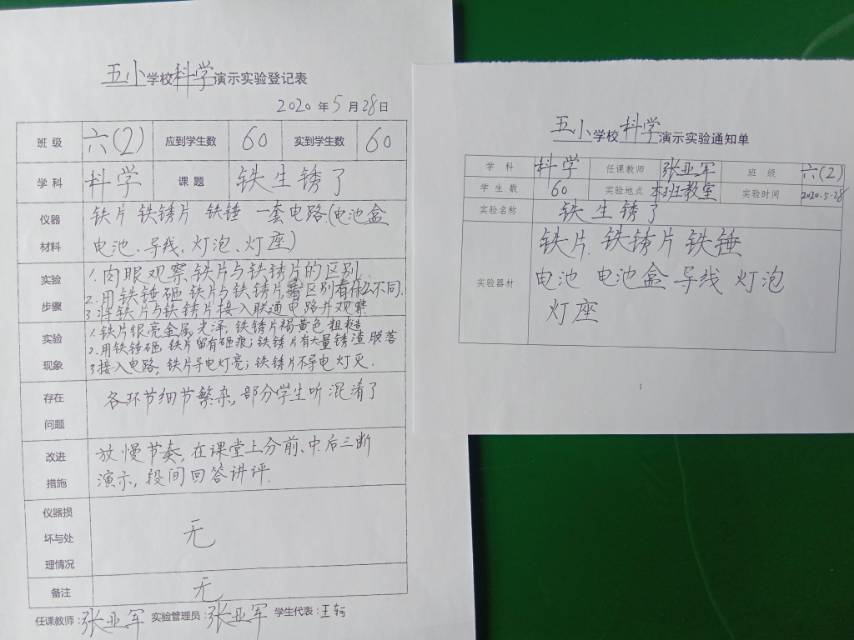 五小学校科学演示实验登记表
2020年5月28日
班级 六(2) 应到学生数 60 实到学生数 60
学科 科学 课题 铁生锈了
仪器材料 铁片 铁锈片 铁锤 一套电路(电池盒
电池、导线、灯泡、灯座)
实验步骤 1.肉眼观察铁片与铁锈片的区别.
2.用铁锤砸铁片与铁锈片,看区别有什么不同.
3.将铁片与铁锈片接入联通电路并观察
实验现象 1.铁片银亮金属光泽,铁锈片褐黄色粗糙
2.用铁锤砸,铁片留有砸痕;铁锈片有大量锈渣脱落
3.接入电路,铁片导电灯亮;铁锈片不导电灯灭.
存在问题 各环节细节繁杂,部分学生听混淆了
改进措施 放慢节奏,在课堂上分前、中、后三断
演示,段间回答讲评.
仪器损坏与处理情况 无
备注 无
任课教师:张亚军 实验管理员:张亚军 学生代表:王
五小学校科学演示实验通知单
学科 科学 任课教师 张亚军 班级 六(2)
学生数 60 实验地点 本班教室 实验时间 2020.5.28
实验名称 铁生锈了
实验器材 铁片 铁锈片 铁锤
电池 电池盒 导线 灯泡
灯座
1